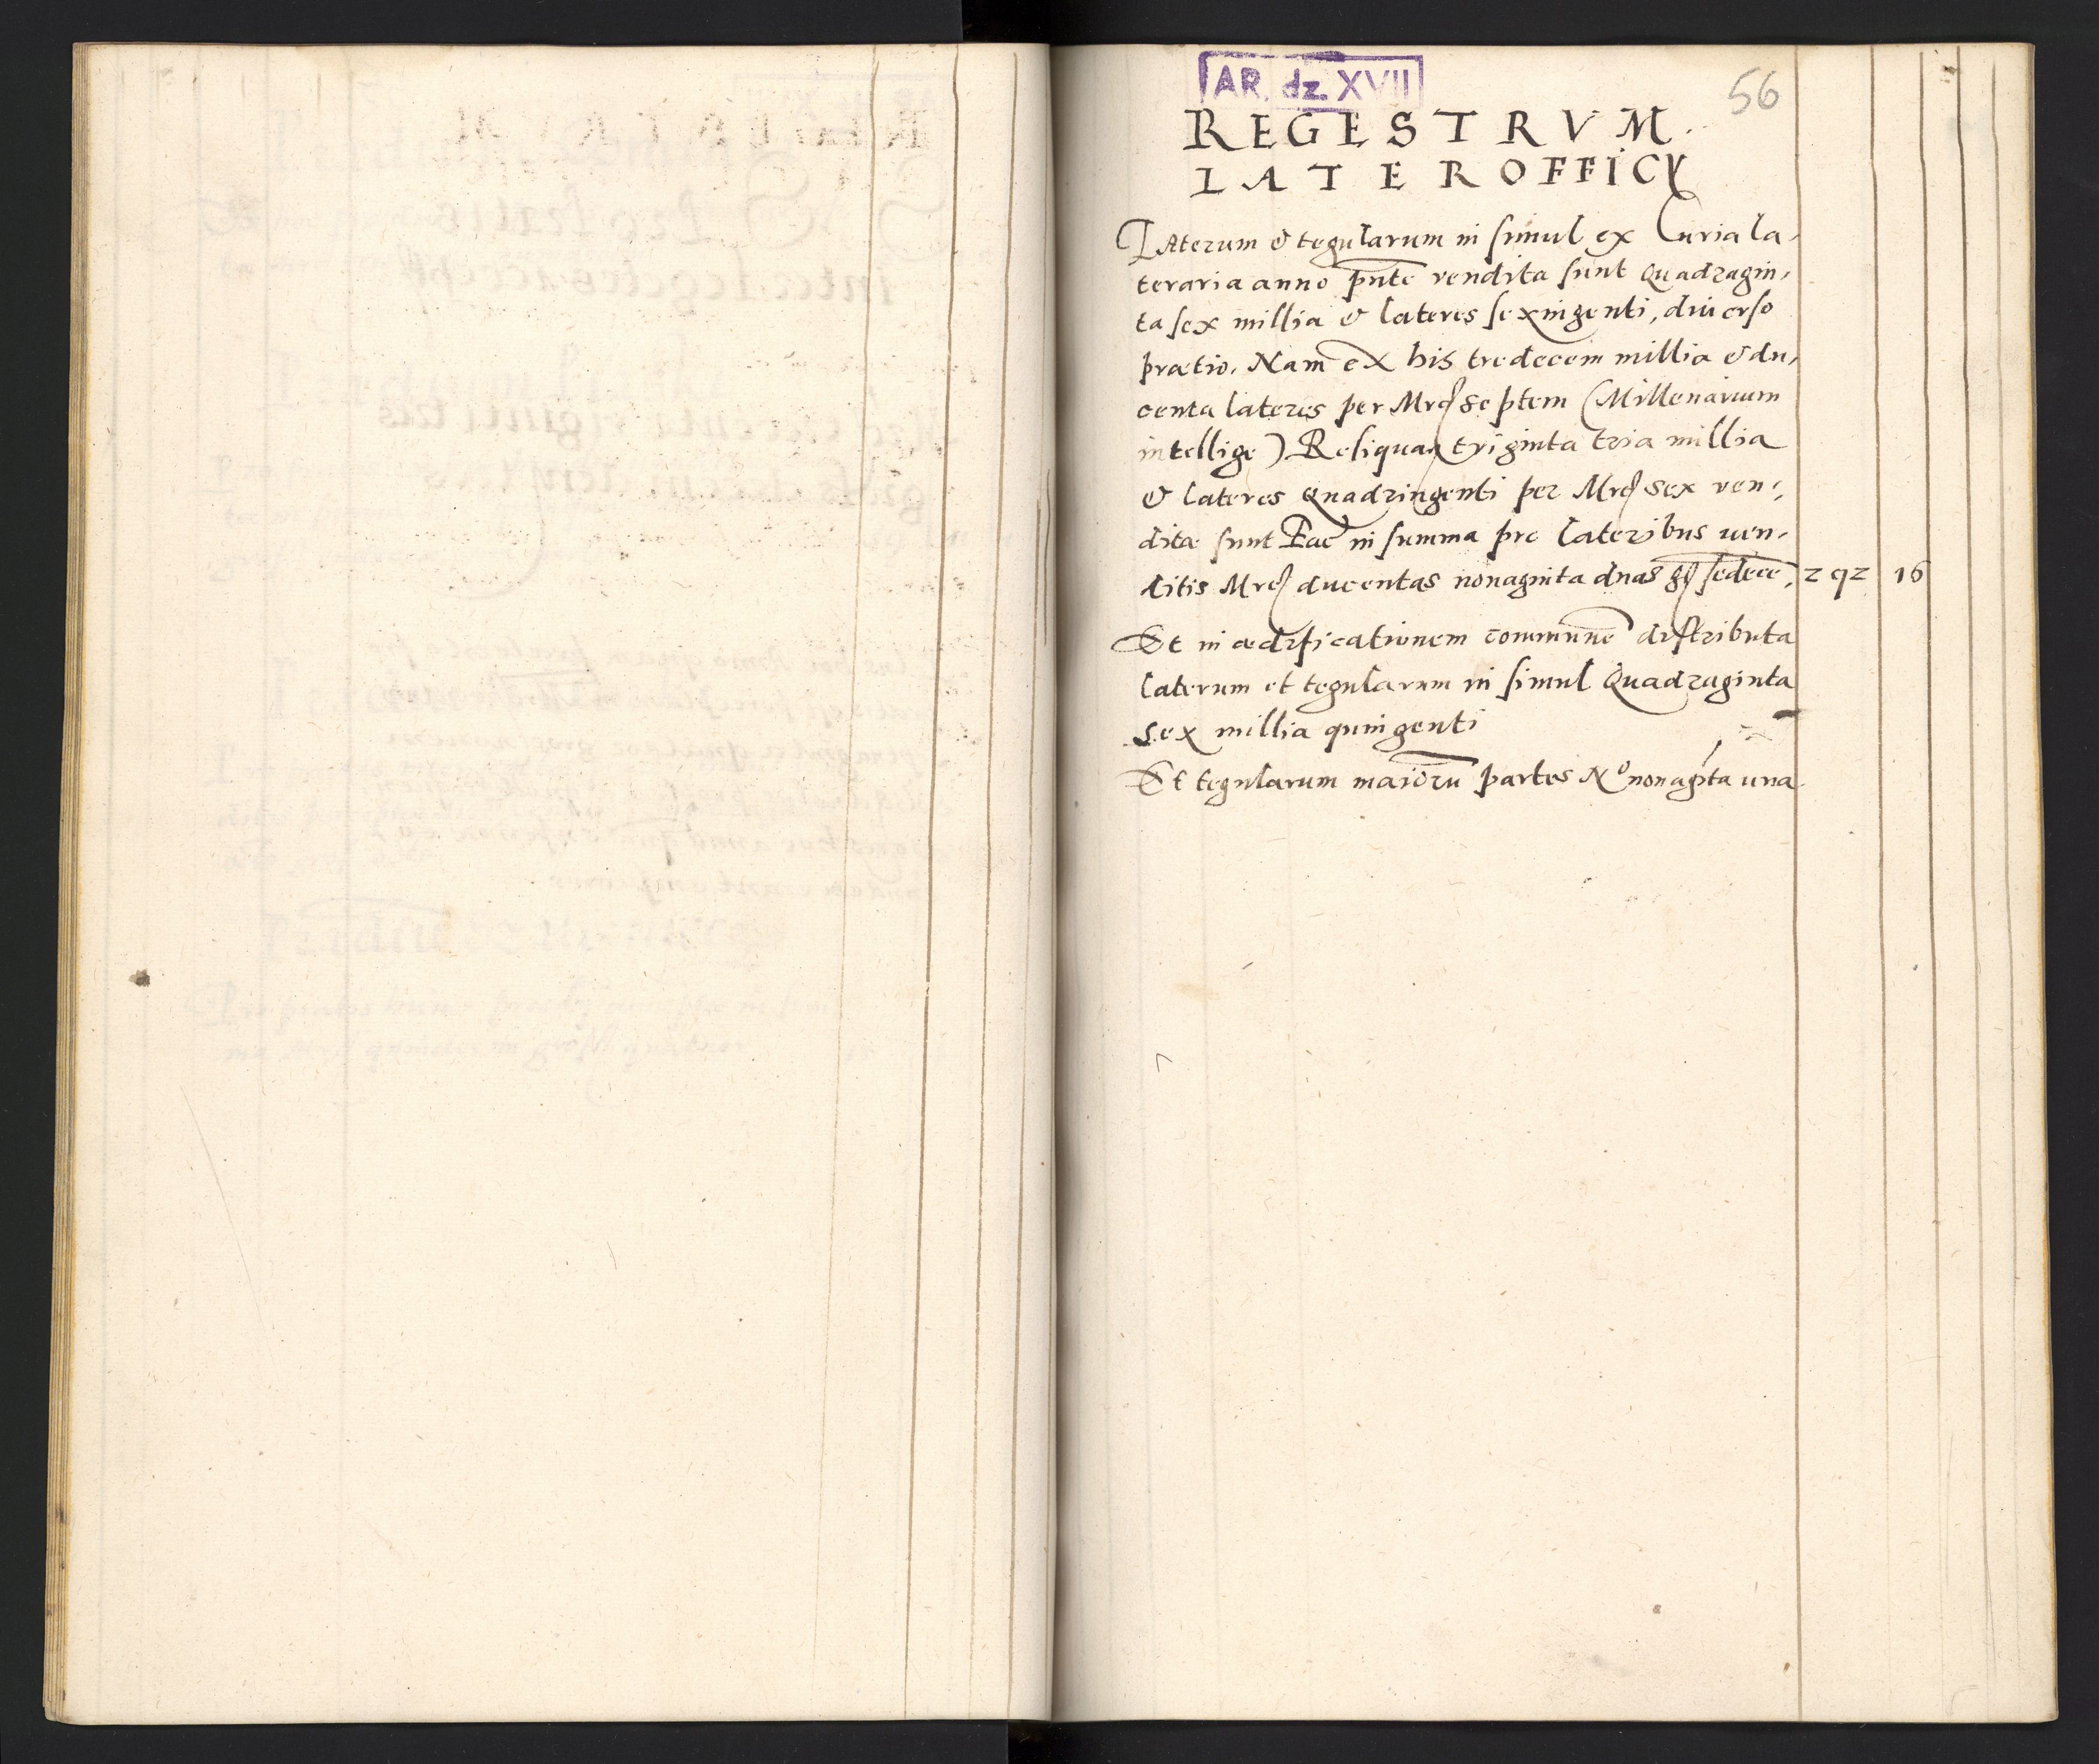 AR. dz. XVII
56
REGESTRVM.
LATEROFFICY
LAterum & tegularum in simul ex Curia la-
teraria anno pñte vendita sunt Quadragin-
ta sex millia & lateres sexingenti, diuerso
pratio. Nam ex his tredecem millia & du-
centa lateres per Mrc septem (Millenarium
intellige) Reliquaq triginta tria millia
& lateres Quadringenti per Mrc sex ven-
dita sunt Fac in summa pro lateribus uen-
ditis Mrc ducentas nonaginta duas gr sedecē, 292 16
Et in ædificationem commune distributa
laterum et tegularum in simul Quadraginta
sex millia quingenti
Et tegularum maiorū partes No nonagīta una